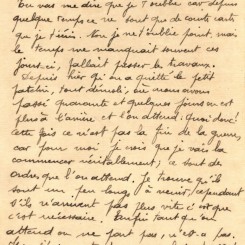 Tu vas me dire que je t'oublie car depuis
quelque temps ce ne sont que de courte carte
que je t'écris. Non je ne t'oublie point, mais
le temps me manquait souvent ces
jours-ci, fallait presser les travaux.
Depuis hier qu'on a quitté le petit
patelin, tout démoli, où nous avons
passé quarante et quelques jours on est
plus à l'arrière et l'on attend. Quoi donc?
cette fois ce n'est pas la fin de la guerre,
car pour moi je vois que je vais la
commencer véritablement; ce sont de
ordre que l'on attend. Je trouve qu'ils
sont un peu long, à venir, cependant
s'ils n'arrivent pas plus vite c'est que
c'est nécessaire. Enfin tant que on
attend on ne part pas, n'est-ce pas.